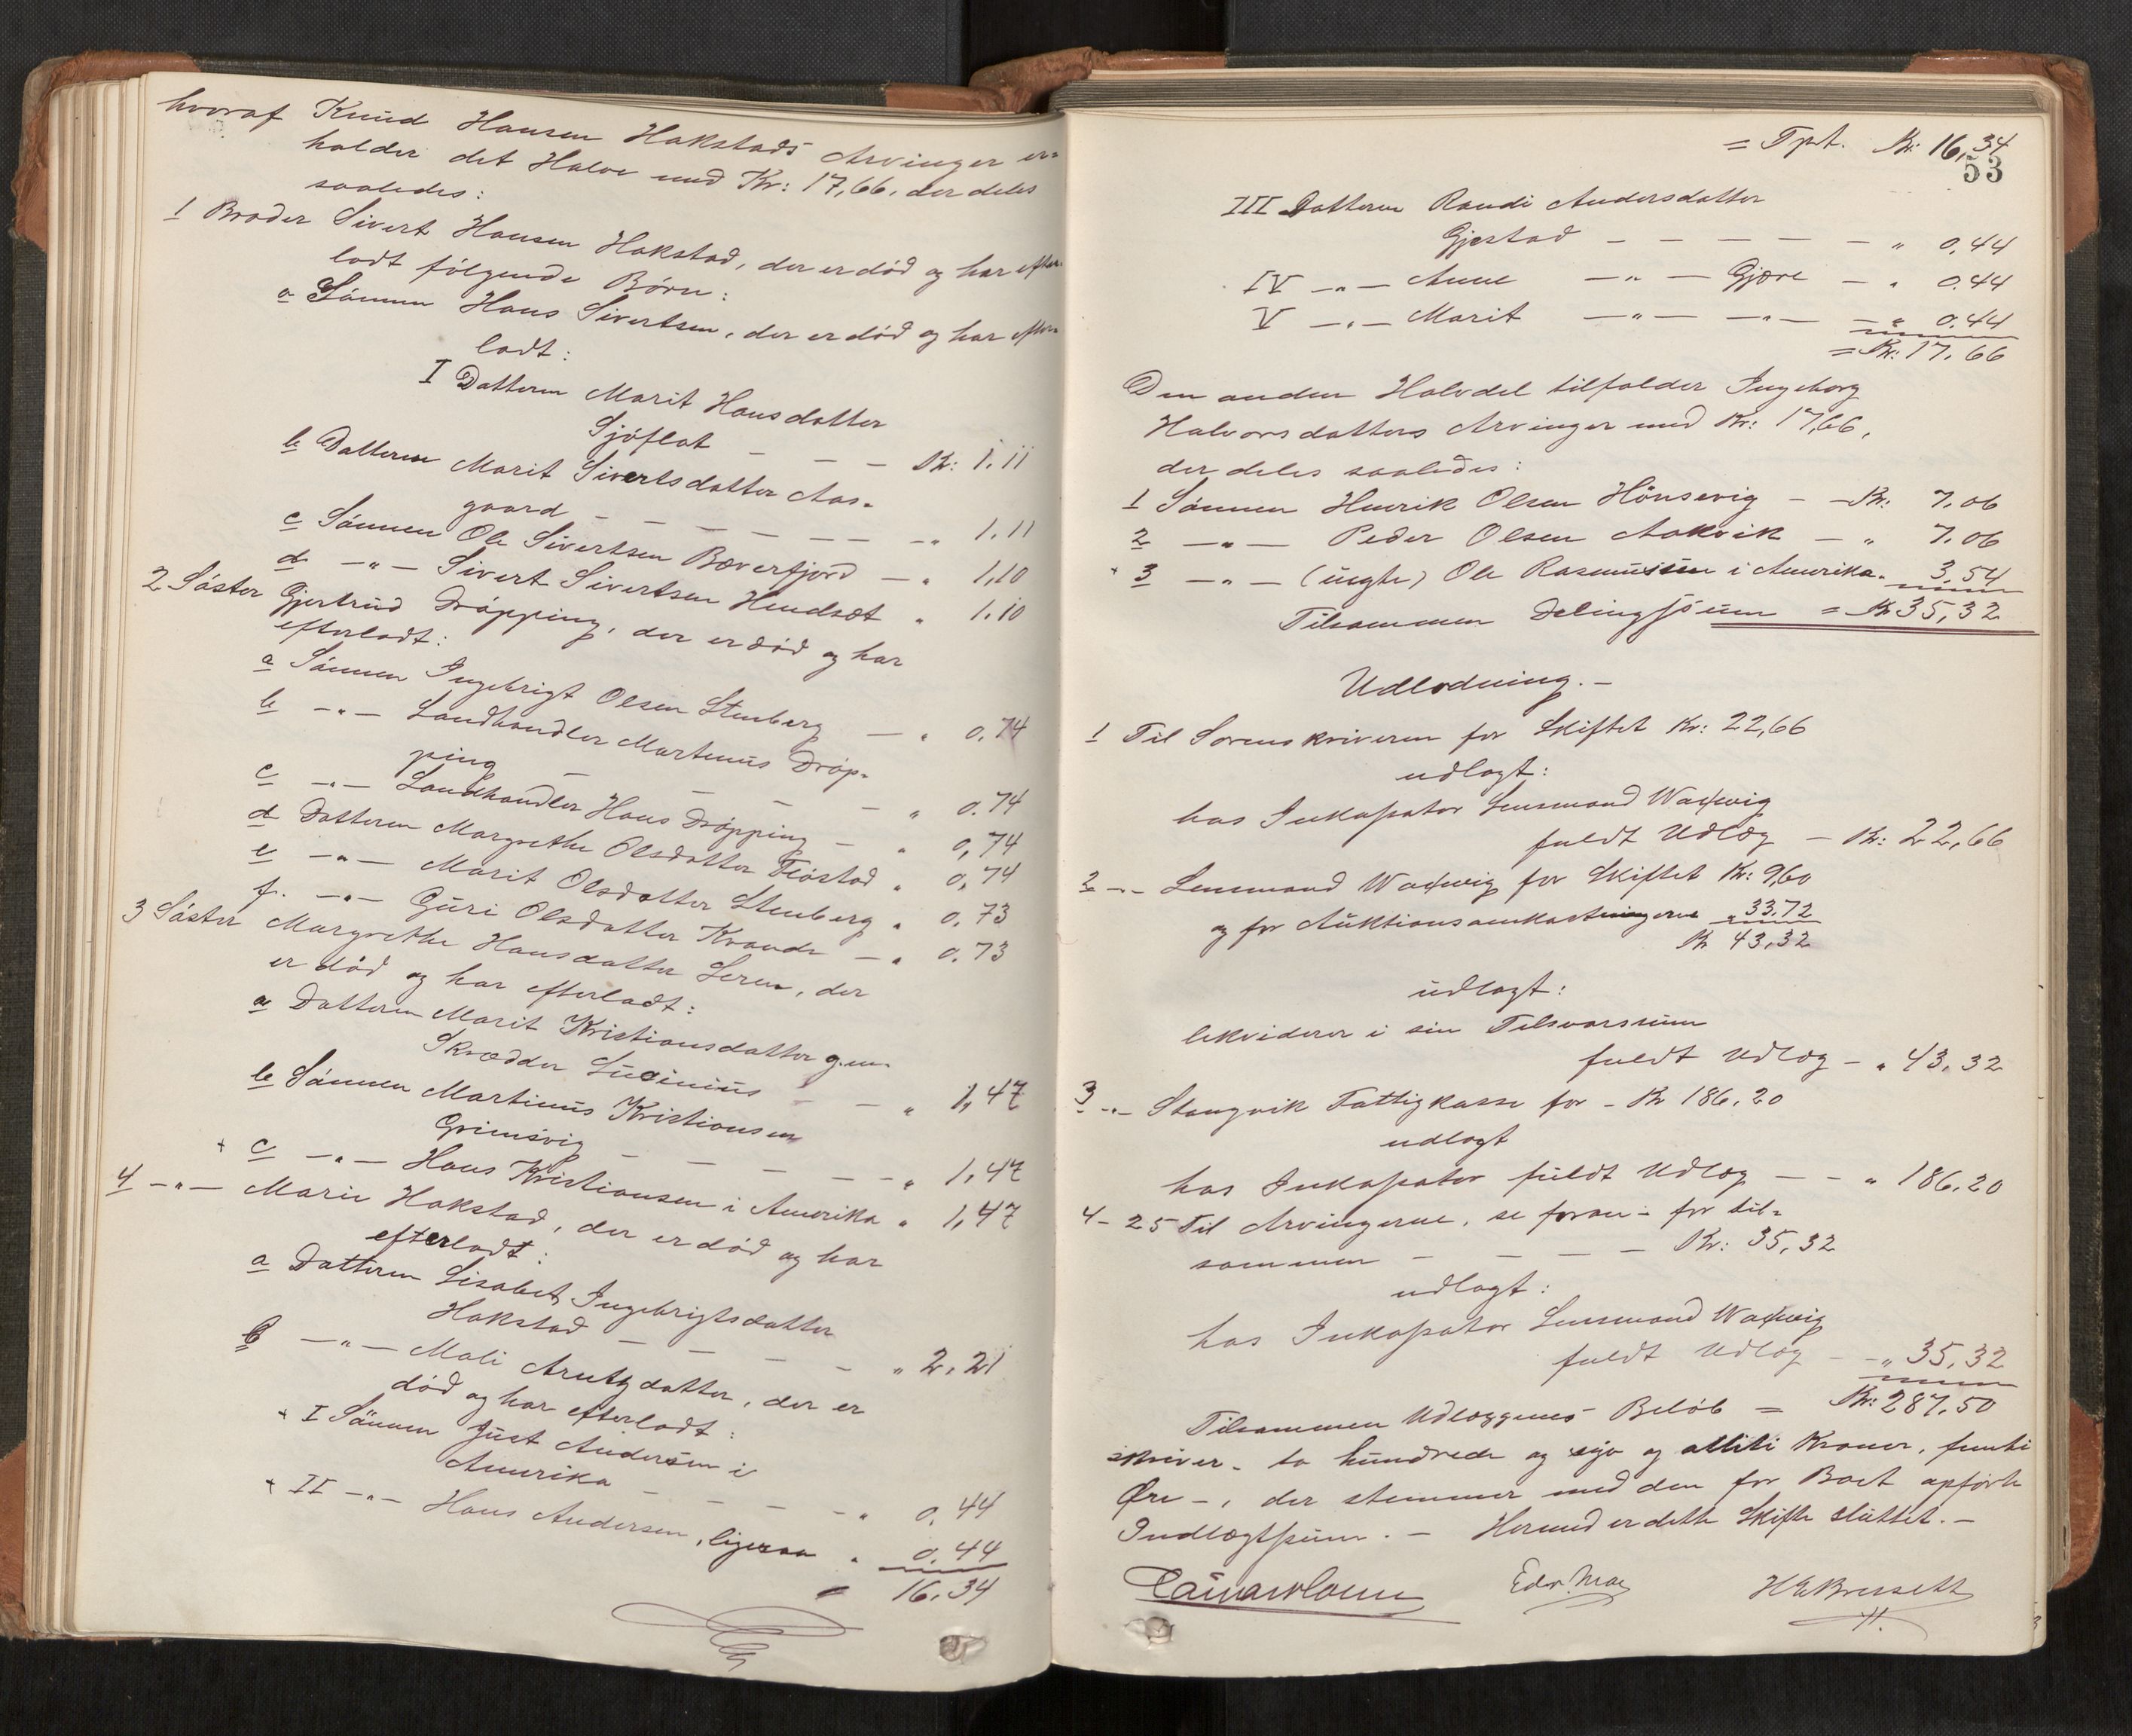 hvoraf Knud Hansen Hakstads Arvinger er-
holder det Halve med Kr: 17,66, der deles
saaledes:
1 Broder Sivert Hansen Hakstad, der er død og har efter-
ladt følgende Børn:
a Sønnen Hans Sivertsen, der er død og har efter-
ladt:
I Datteren Marit Hansdatter
Sjøflat — — — Kr: 1.11
b Datteren Marit Sivertsdatter Aas-
gaard — — — — — — „ 1.11
c Sønnen Ole Sivertsen Bæverfjord — „ 1,10
d —„— Sivert Sivertsen Hendset „ 1.10
2 Søster Gjertrud Drøpping, der er død og har
efterladt:
a Sønnen Ingebrigt Olsen Stenberg — „ 0.74
b —„— Landhandler Martinus Drøp-
ping — — — — „ 0.74
c —„— Landhandler Hans Drøpping — „ 0,74
d Datteren Margrethe Olsdatter Fiøstad „ 0,74
e —„— Marit Olsdatter Stenberg „ 0.73
f. —„— Guri Olsdatter Kvande — „ 0.73
3 Søster Margrethe Hansdatter Leren, der
er død og har efterladt:
a Datteren Marit Kristiansdatter g.m.
Skrædder Lucinius — — „ 1,47
b Sønnen Martinus Kristiansen
Grimsvig — — — — — „ 1,47
+ c —„— Hans Kristiansen i Amerika „ 1,47
4 —„— Marie Hakstad, der er død og har
efterladt:
a Datteren Lisabet Ingebrigtsdatter
Hakstad — — — — „ 2.21
b —„— Mali Arntzdatter, der er
død og har efterladt:
+ I Sønnen Just Andersen i
Amerika — — — — „ 0.44
+ II —„— Hans Andersen, ligesaa „ 0.44
= 16,34
= Tpt. Kr: 16,34
53
III Datteren Randi Andersdatter
Gjestad — — — — — „ 0.44
IV —„— Anne —„— Gjøre — „ 0.44
V —„— Marit —„— —„— —„ 0.44
= Kr: 17,66
Den anden Halvdel tilfalder Ingeborg
Halvorsdatters Arvinger med Kr: 17,66,
der deles saaledes:
1 Sønnen Henrik Olsen Hønsvig — — Kr: 7,06
2 —„— Peder Olsen Aakvik — „ 7.06
+ 3 —„— (uægte) Ole Rasmussen i Amerika „ 3,54
Tilsammen Delingssum = Kr 35,32
Udlodning. —
1 Til Sorenskriveren for Skiftet Kr: 22,66
udlagt:
hos Inkassator Lensmand Waxwig
fuldt Udlæg — Kr: 22,66
2 —„— Lensmand Waxwig for Skiftet Kr: 9,60
og for Auktionsomkostningerne „ 33,72
Kr 43,32
udlagt:
likviderer i sin Tilsvarssum
fuldt Udlæg — „ 43,32
3 —„— Stangvik Fattigkasse for — Kr 186,20
udlagt
hos Inkassator fuldt Udlæg — — „ 186,20
4 — 25 Til Arvingerne, se foran — for til-
sammen — — — — Kr: 35,32
udlagt:
hos Inkassator Lensmand Waxwig
fuldt Udlæg — — „ 35,32
Tilsammen Udlæggenes Beløb = Kr: 287,50
skriver — to hundrede og syv og otteti Kroner, femti
Øre —, der stemmer med den for Boet opførte
Indtægtssum. — Hermed er dette Skifte sluttet. —